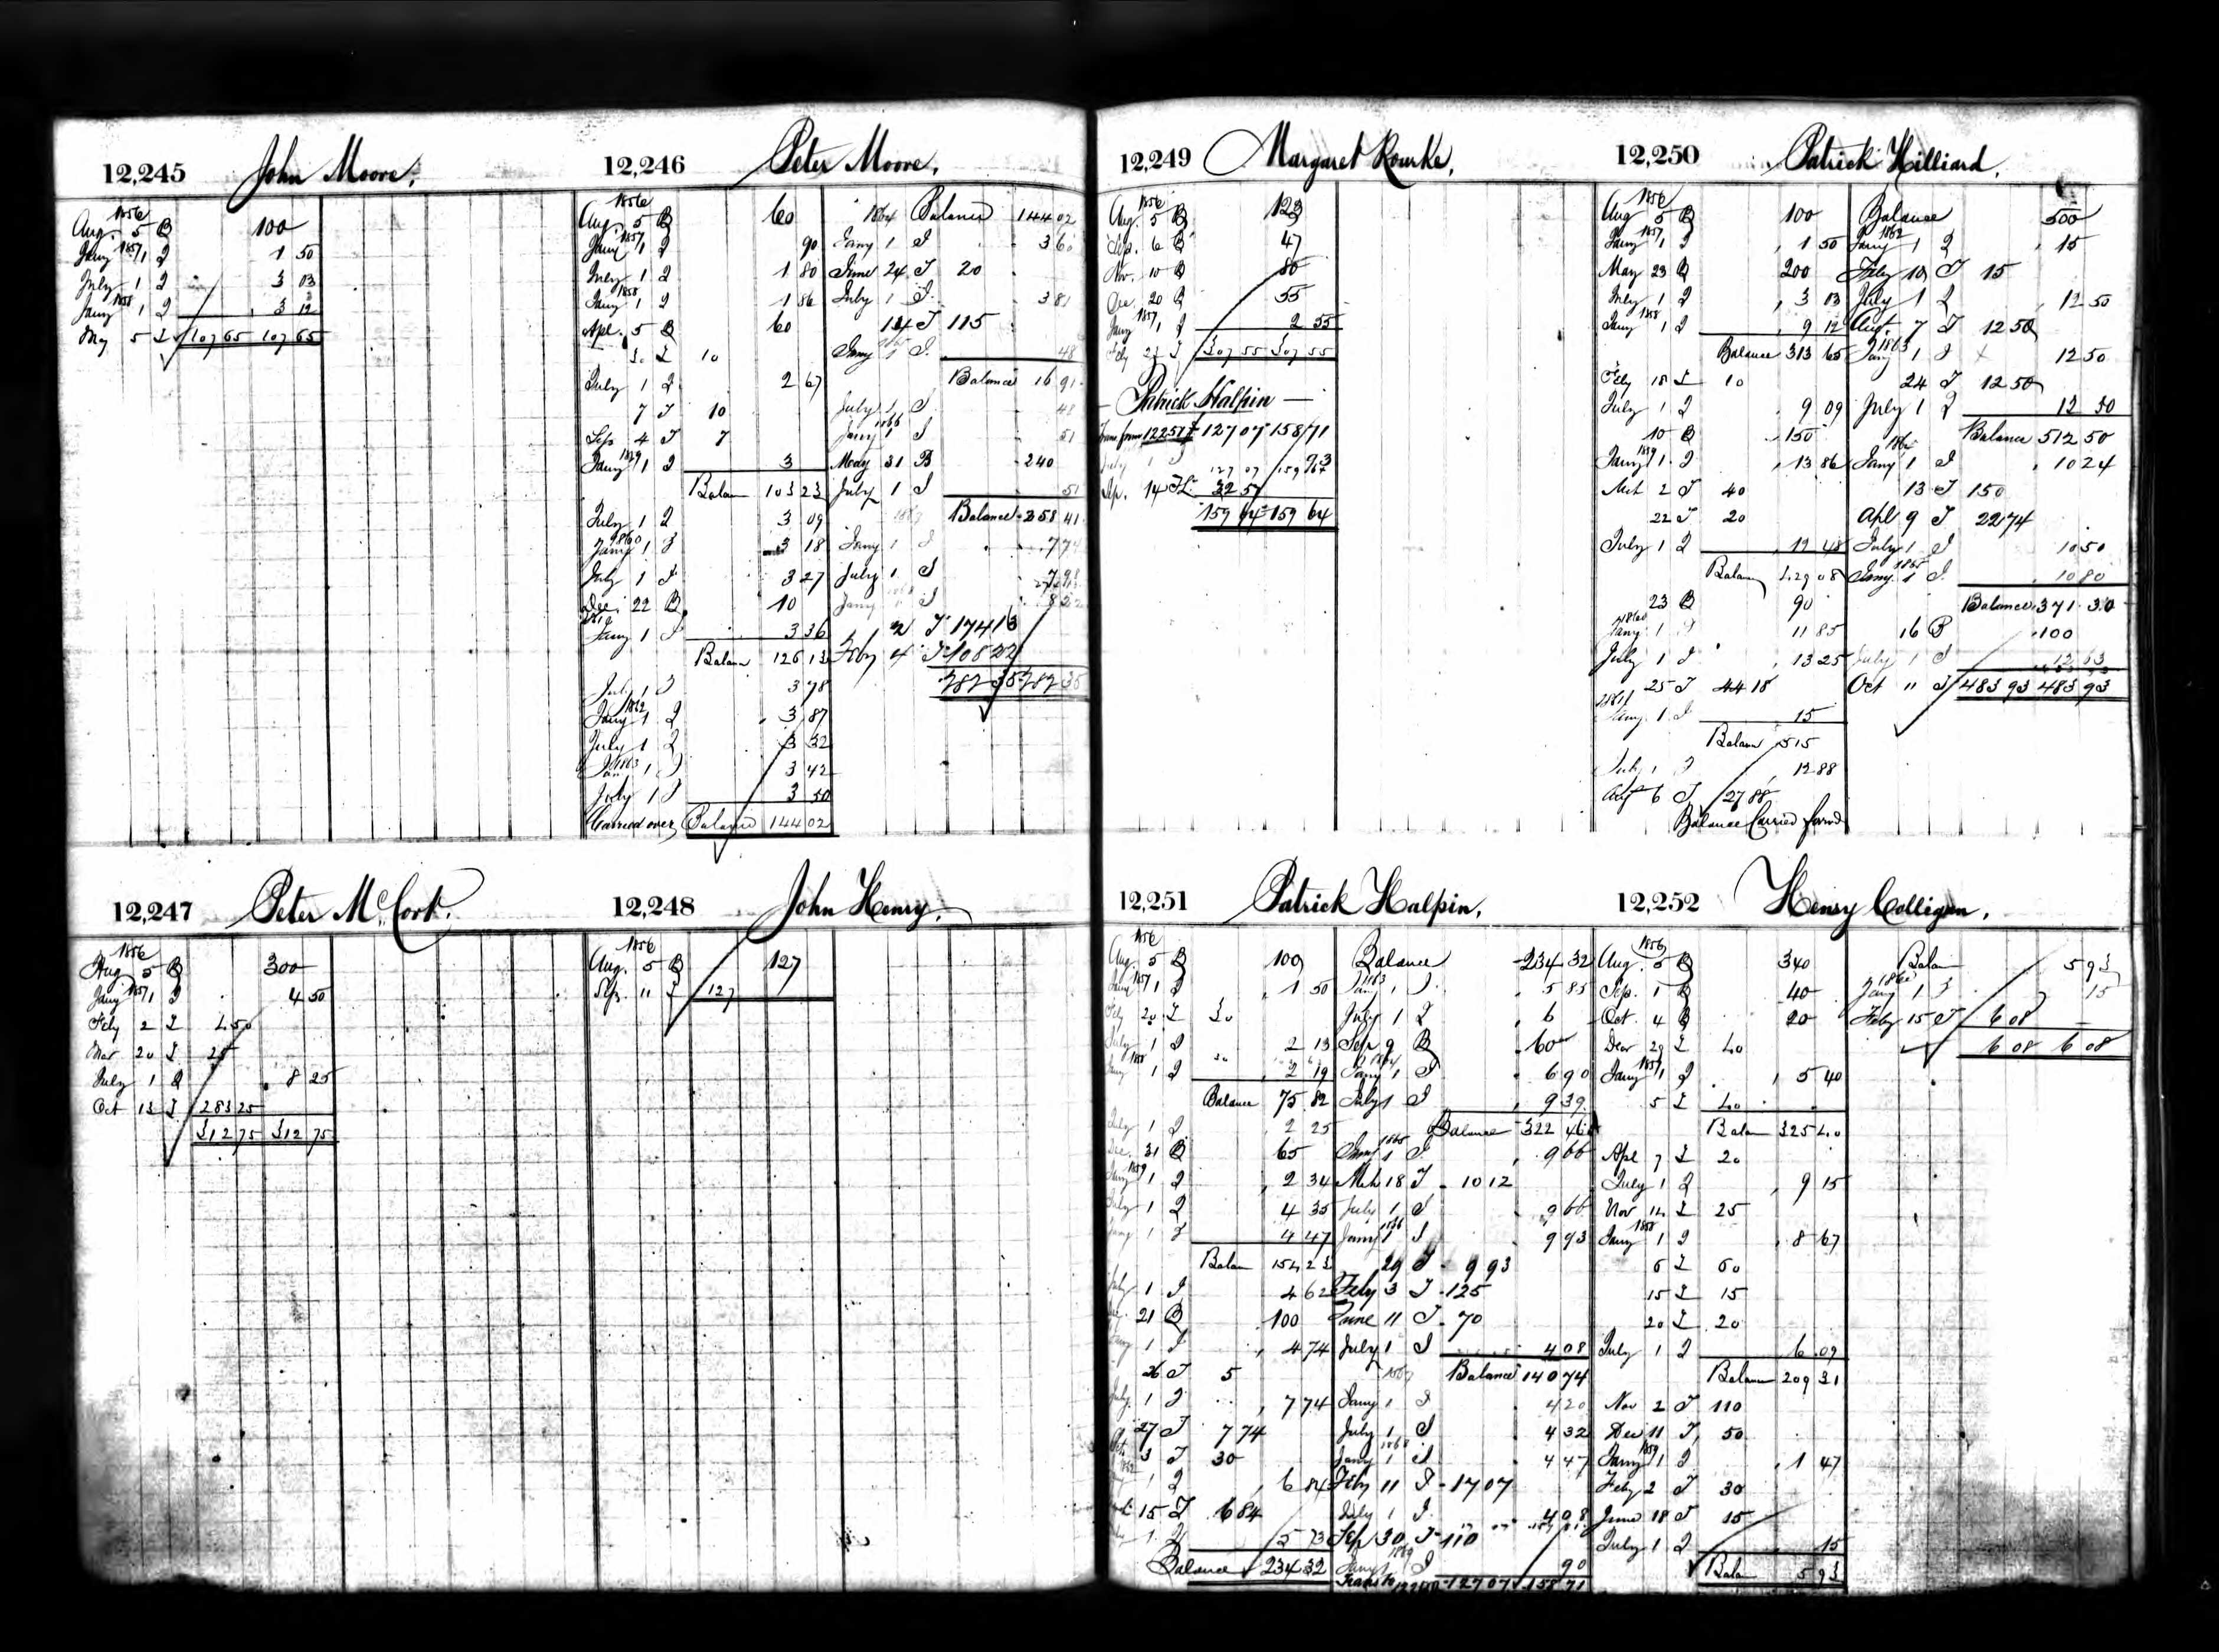 12,245 John Moore.
1856
Aug. 5 B 100
Jany 1857 1 I 1 50
July 1 I 3 03
Jany 1858 1 I 3 12
May 5 I 107 65 107 65
12,246 Peter Moore.
1856
Aug. 5 B 60
Jany 1857 1 I 90
July 1 I 1 80
Jany 1858 1 I 1 86
Apl. 5 B 60
10
July 1 I 2 67
7 I 10
Sep 4 I 7
Jany 1859 1 I 3
Balan 103 23
July 1 I 3 09
Jany 1860 1 I 3 18
July 1 I 3 27
Dec. 22 B 10
Jany 1 I 3 36
Balan 126 13
July 1 I 3 78
Jany 1862 1 I 3 87
July 1 I 3 32
Jan 1863 1 I 3 42
July 1 I 3 50
Carried over Balance 144 02
1864 Balance 144 02
Jany 1 I 3 60
June 24 I 20
July 1 I 3 81
14 I 115
Jany 1 I 48
Balance 16 91
July 1 I 48
Jany 1866 1 I 51
May 31 B 240
July 1 I 51
Balance 258 41
Jany 1 I 7 74
July 1 I 7 98
Jany 1 I 8 22
2 I 174 13
Feby 4 I 108 22
282 35 282 35
12,247 Peter McCort.
1856
Aug 5 B 300
Jany 1857 1 I 4 50
Feby 2 I 4 50
Mar 20 I 25
July 1 I 8 25
Oct 13 I 283 25
312 75 312 75
12,248 John Henry.
1856
Aug. 5 B 127
Sep. 11 I 127
12,249 Margaret Rourke.
1856
Aug. 5 B 123
Sep. 6 B 47
Nov. 10 B 80
Dec 20 B 55
Jany 1857 1 I 2 55
Feby 27 I 307 55 307 55
Patrick Halpin
Trans from 12251 127 07 158 71
July 1 I 93
127 07 159 64
Sep. 14 32 57
159 64 159 64
12,250 Patrick Hilliard.
1856
Aug 5 B 100
Jany 1857 1 I 1 50
May 23 B 200
July 1 I 3 03
Jany 1858 1 I 9 12
Balance 313 65
Feby 18 I 10
July 1 I 9 09
10 B 150
Jany 1859 1 I 13 86
Mch 2 I 40
22 I 20
July 1 I 12 48
Balan 429 08
23 B 90
Jany 1860 1 I 11 85
July 1 I 13 25
25 I 44 18
Jany 1861 1 I 15
Balan 515
July 1 I 12 88
Aug 6 I 27 88
Balance Carried forwd
Balance 500
Jany 1862 1 I 15
Feby 10 I 15
July 1 I 12 50
Aug. 7 I 12 50
Jany 1863 1 I 12 50
24 I 12 50
July 1 I 12 50
Balance 512 50
1864
Jany 1 I 10 24
13 I 150
Apl 9 I 22 74
July 1 I 10 50
Jany 1865 1 I 10 80
Balance 371 30
16 B 100
July 1 I 12 63
Oct 11 I 483 93 483 93
12,251 Patrick Halpin.
1856
Aug. 5 B 100
Jany 1857 1 I 1 50
Feby 20 I 30
July 1 I 2 13
Jany 1858 1 I 2 19
Balance 75 82
July 1 I 2 25
Dec. 31 B 65
Jany 1859 1 I 2 34
July 1 I 4 35
Jany 1 I 4 47
Balan 154 23
July 1 I 4 62
21 B 100
Jany 1 I 4 74
26 I 5
July 1 I 7 74
27 I 7 74
Oct. 3 I 30
1862 1 I 6 84
15 I 6 84
1 I 5 73
Balance 234 32
Balance 234 32
Jany 1863 1 I 5 85
July 1 I 6
Sep 9 B 60
Jany 1864 1 I 6 90
July 1 I 9 39
Balance 322 46
Jany 1865 1 I 9 66
Mch 18 I 10 12
July 1 I 9 66
Jany 1866 1 I 9 93
29 I 9 93
Feby 3 I 125
June 11 I 70
July 1 I 4 08
1867 Balance 140 74
Jany 1 I 4 20
July 1 I 4 32
Jany 1868 1 I 4 47
Feby 11 I 17 07
July 1 I 4 08
Sep 30 I 110
Jany 1869 1 I 90
Trans to 12249 127 07 158 71
12,252 Henry Colligan.
1856
Aug. 5 B 340
Sep. 1 B 40
Oct. 4 B 20
Decr 29 I 40
Jany 1857 1 I 5 40
5 I 40
Balan 325 40
Apl 7 I 20
July 1 I 9 15
Nov 14 I 25
Jany 1858 1 I 8 67
6 I 60
15 I 15
20 I 20
July 1 I 6 09
Balance 209 31
Nov 2 I 110
Dec 11 I 50
Jany 1859 1 I 1 47
Feby 2 I 30
June 18 I 15
July 1 I 15
Bala 5 93
Balan 5 93
Jany 1860 1 I 15
Feby 15 I 6 08
6 08 6 08